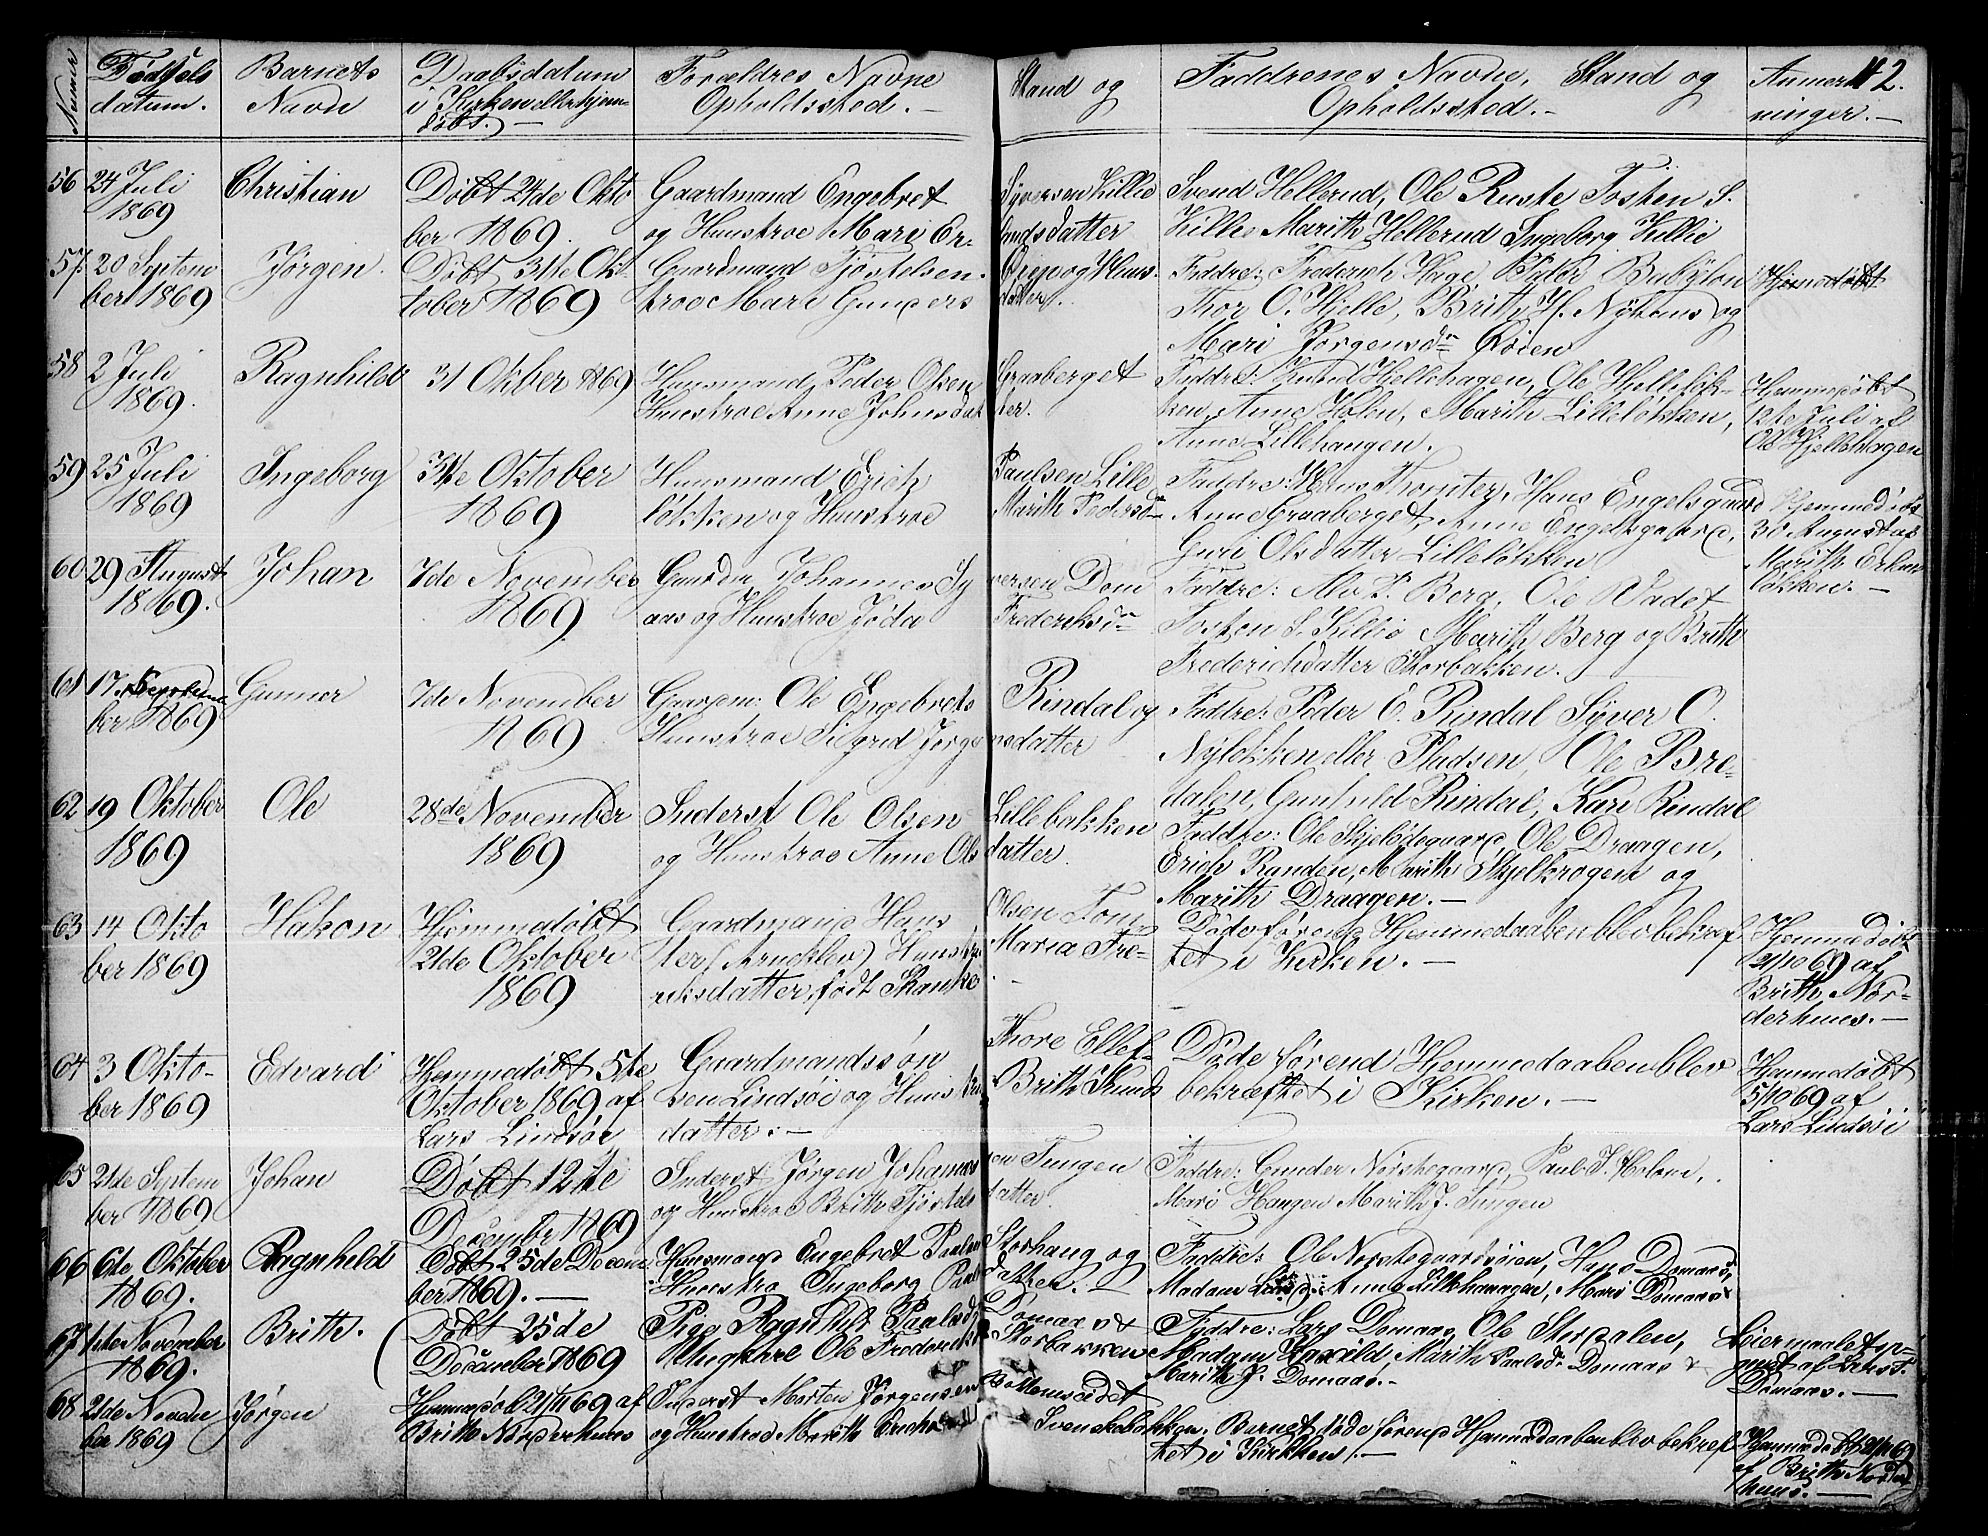 Numer
Fødsels
datum.
Barnets
Navn
Daabsdatum
i Kirken eller hjem-
døbt.
Forældres Navne
Opholdssted.
Stand og
Faddrenes Navne, Stand og
Opholdssted.
Anmer 42.
ninger.
56 24 Juli
1869
Christian
Døbt 24de Okto
ber 1869.
Gaardmand Engebret
og Hunstroe Mari Er-
Syversen Killie
landsdatter
Svend Hellerud, Ole Ruste Tosten S.
Killie Marith Hellerud Ingeborg Killie
57. 20 Septem
ber 1869
Jørgen.
Døbt 31te Ok-
tober 1869
Gaardmand Tjøstelsen
troe Mari Gunders
datter.
Faddre: Frederich Hage Peder Babylon
Thor O. Hjelle, Brith H. Nyhuus og
Mari Jørgensdr Øien
Hjemedøbt
58 2 Juli
1869.
Ragnhild
31 Oktber 1869
Huusmand Peder Olsen
Hunstroe Anne Johnsdat
Graaberget
ter.
Faddre: Hellehagen, Ole Hjelleløk-
ken, Anne Holen, Marith Lilleløkken,
Anne Lillehaugen.
Hjemmedøbt
12te Juli af
Ole Hjellehagen
59 25 Juli
1869
Ingeborg
31te Oktober
1869
Huusmand Erich
løkken og Hunstroe
Paulsen Lille
Marith Pedersdr
Faddre: Hans Thomter, Hans Engelsgaard
Anne Graaberget, Anne Engelsgaard,
Guri Olsdatter Lilleløkken
Hjemmedøbt
30 August af
Marith Erlan
løkken.
60 29 August
1869.
Johan
7de November
1869.
Gaardm Johannes Sy
aas og Hunstroe Jøda
versen Dom
Frederiksdr
Faddre: Alv P. Berg, Ole Vadet
Tosten S. Killie Marith Berg og Brith
Frederichsdatter Storbakken.
61 17. Septem
ber 1869
Gunner
7de November
1869
Gaardm: Ole Engebrets
Hunstroe Sigrid Jørge
Rindal og
nsdatter
Faddre: Peder E. Rindal Syver O.
Nyløkken eller Pladsen, Ole Bre-
dalen, Gunhild Rindal, Kari Rindal
62 19 Oktober
1869
Ole
28de November
1869
Inderst Ole Olsen
og Hunstroe Anne Ols
Lillebakken
datter.
Faddre: Ole Skjelstegaard, Ole Draagen,
Erich Randen, Marith Skjelkrogen og
Marith Draagen.
63 14 Okto
ber 1869
Hakon
Hjemmedøbt
21de Oktober
1869
Gaardmand Hans
ter (Arneklev) Hunstr
riksdatter, født Skanke
Olsen Tom
Maria Fre-
Dødsførend Hjemmedaaben blev bekref
tet i Kirken.
Hjemmedøbt
21/10 69 af
Brith Nor-
derhuus.
64 3 Okto-
ber 1869
Edvard
Hjemmedøbt 5te
Oktober 1869 af
Lars Lindsøe
Gaardmandssøn
sen Lindsøi og Hunstru
datter:
Thore Ellef-
Brith Knuds
Døde førend Hjemmedaaben blev
bekræftet i Kirken.
Hjemmedøbt
5/10 69 af
Lars Lindsøi
65 21de Septem
ber 1869
Johan
Døbt 12te
Decembr 1869
Inderst Jørgen Johannes
og Hunstroe Brith Tjøstels
sen Tungen
datter.
Faddre: Gunder Norstegaard, Paul J. Holen,
Mari Haugen Marith J. Tungen
66 6de Oktober
1869.
Ragnhild
Døbt 25de Decem
ber 1869.
Huusmand Engebret Paalsen
Hunstro Ingeborg Paals
Storhaug og
datter.
Faddre: Ole Norstegaardsøien, Hans Domaas,
Madam Anne Lillehaagen, Mari Domaas
67 1te November
1869.
Brith.
Døbt 25de
December 1869
Pige Ragnhild Paalsd
Ungkarl Ole Frederiks
Domaas &
Storbakken
Faddre: Lars Domaas Ole Stordalen,
Madam Marith Paalsdr Domaas &
Marith J. Domaas.
Leiermaalet op-
givet af
Domaas.
68 21de Novem
ber 1869
Jørgen
Hjemmedøbt 21/11 69 af
Brith Norderhuus
Inderst Morten Jørgensen
og Hunstroe Marith Erichs
Svenskebakken, Barnet døde førend Hjemmedaaben blev bekref
tet i Kirken.
Hjemmedøbt 21/11 69
af Brith Norder
huus.